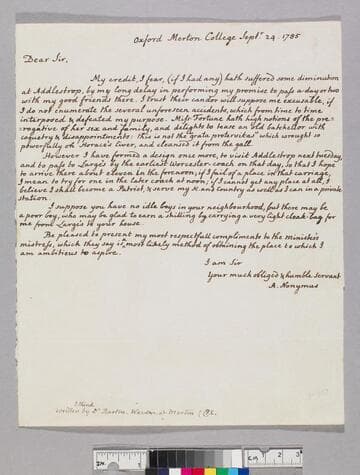 Oxford Merton College Septr. 24. 1785
Dear Sir,
My credit, I fear, (if I had any) hath suffered some diminution
at Addlestrop, by my long delay in performing my promise to pass a day or two
with my good friends there. I trust their candor will suppose me excusable, if
I do not enumerate the several unforeseen accidents, which from time to time
interposed & defeated my purpose. Miss Fortune hath high notions of the pre-
rogative of her sex and family, and delights to tease an old batchellor with
coquetry & disappointments: this is not the "grata protervitas" which wrought so
powerfully on Horace's liver, and cleansed it from the gall.
However I have formed a design once more, to visit Addlestrop next tuesday,
and to pass to Surgis by the earliest Worcester coach on that day, so that I hope
to arrive there about eleven in the forenoon; if I fail of a place in that carriage,
I mean to try for one in the later coach at noon; if I cannot get any place at all, I
believe I shall become a Patriot, & serve my K. and Country as well as I can in a private
station.
I suppose you have no idle boys in your neighbourhood, but there may be
a poor boy, who may be glad to earn a shilling by carrying a very light cloak-bag for
me from Surgis to your house.
Be pleased to present my most respectfull compliments to the Minister's
mistress, which they say is most likely method of obtaining the place to which I
am ambitious to aspire.
I am Sir
Your much obliged & humble Servant
A. Nonymus
I think
written by Dr. Barton, Warden of Merton